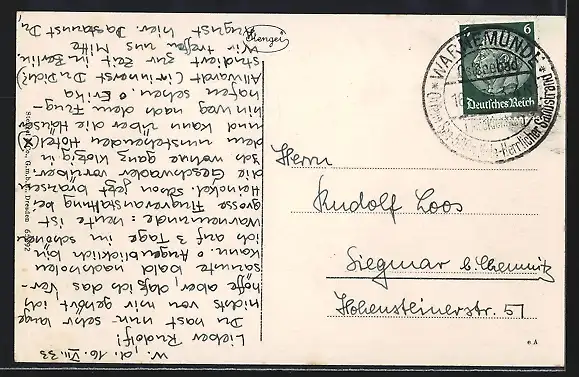 W., d. 16. VII. 33
Lieber Rudolf!
Du hast nun sehr lange
nichts von mir gehört ich
hoffe aber, daß ich das Ver-
säumte bald nachholen
kann. Augenblicklich bin
ich auf 3 Tage im schönen
Warnemünde: heute ist
grosse Flugveranstaltung bei
Heinkel. Schon jetzt brausen
die Geschwader vorüber.
Ich wohne ganz
dem untenstehenden (Hotel)
und kann über die Häuser
hinweg nach dem Flug-
hafen sehen. Erika
Allwardt (erinnerst Du Dich?)
studiert zur Zeit in Berlin.
Wir treffen uns Mitte
August hier. Da staunst Du
Stengel
Stengel & Co., G.m.b.H., Dresden
6
WARNEMÜNDE
Ostseebad
Deutsches Reich
Herrlicher Badestrand
Herrn
Rudolf Loos
Siegmar b. Chemnitz
Hohensteinerstr. 51
e A